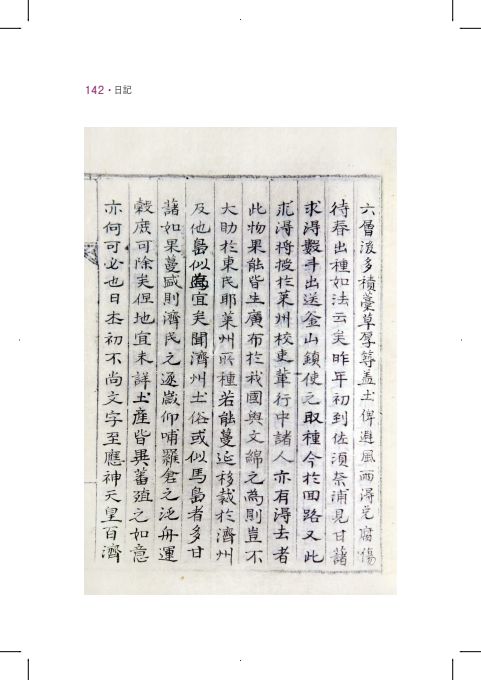 142 · 日記
六層後多積藁草厚等盖土俾避風雨得免腐傷
待春出種如法云矣昨年初到佐須奈浦見甘藷
求得數斗出送釜山鎭使之取種今於回路又此
求得將授於萊州校吏輩行中諸人亦有得去者
此物果能皆生廣布於我國與文綿之為則豈不
大助於東民耶萊州所種若能蔓延移栽於濟州
及他島似為宜矣聞濟州土俗或似馬島者多甘
藷如果蔓盛則濟民之逐歲仰哺羅倉之泛舟運
穀庶可除矣但地宜未詳土產皆異蕃殖之如意
亦何可必也日本初不尚文字至應神天皇百濟